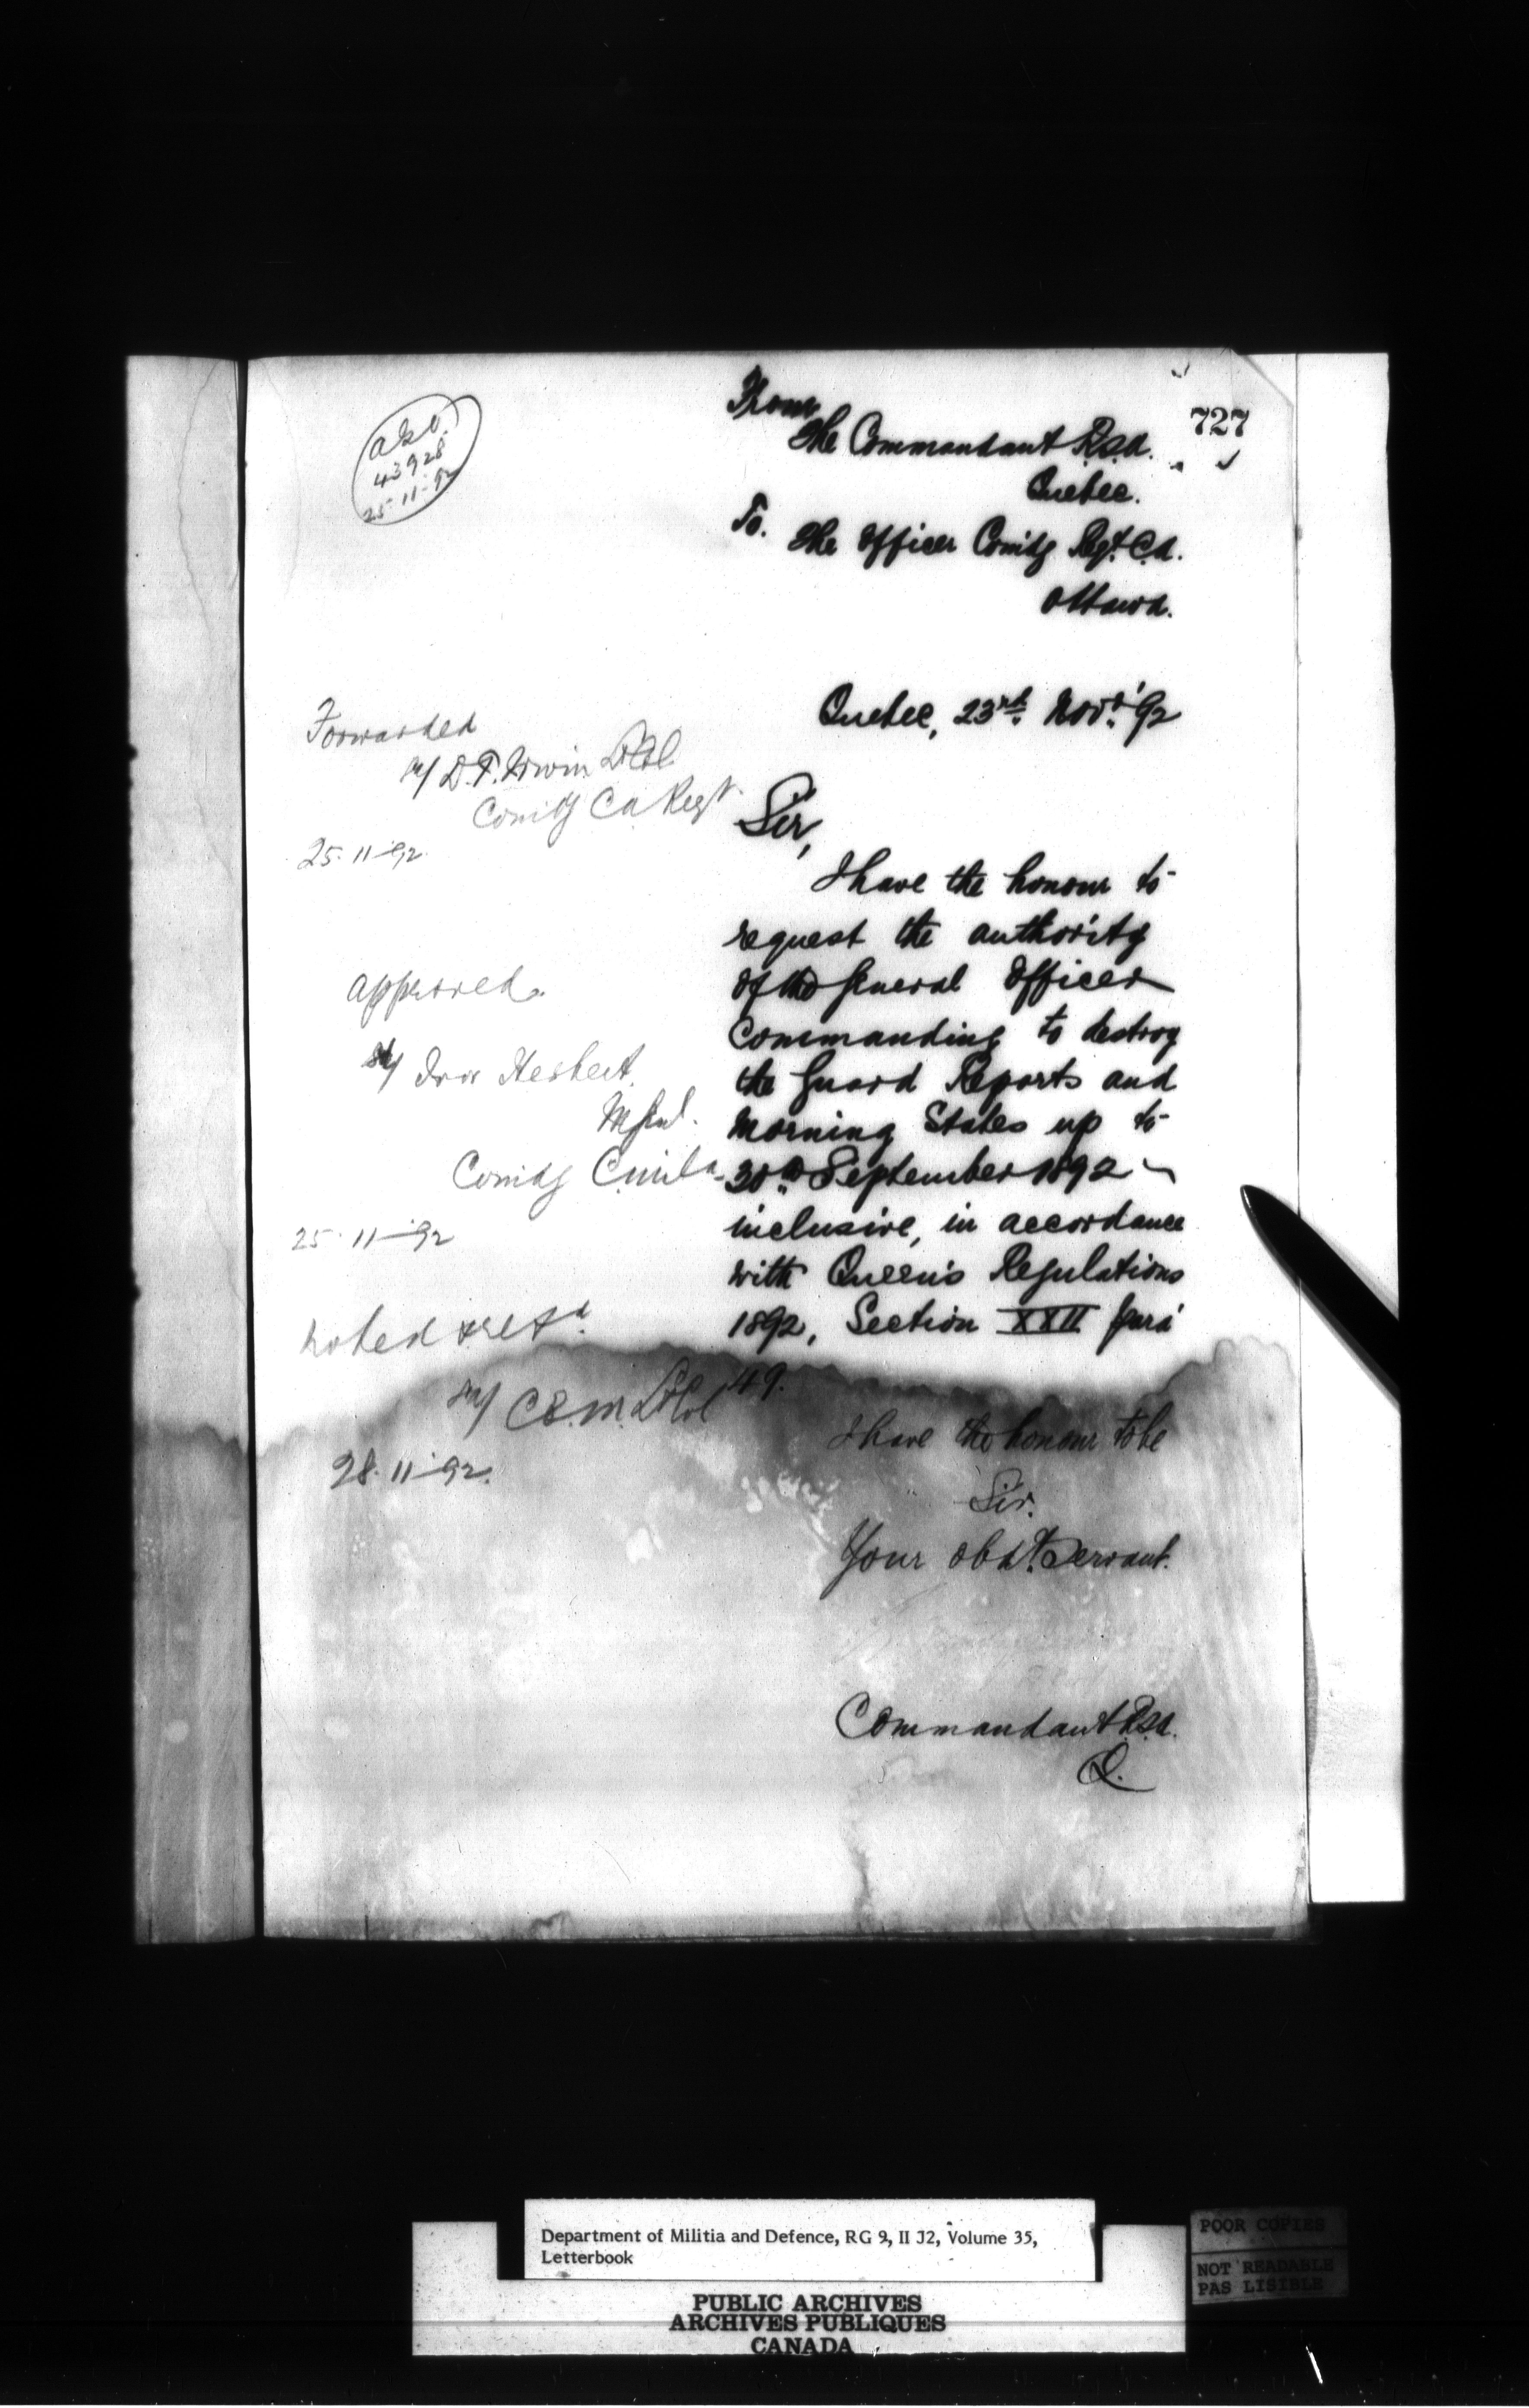 727
From
The Commandant R.S.A.
Quebec.
To.
The Officer Comdg Regt. C.A.
Ottawa.
43928
25-11-92
Quebec, 23rd. Novr. '92
Forwarded
sd/ D.T. Irwin Lt Col
Comdg CA Regt.
25-11-92
Sir,
I have the honour to
request the authority
of the General Officer
Commanding to destroy
the Guard Reports and
Morning States up to
30th September 1892
inclusive, in accordance
with Queen's Regulations
1892, Section XXII para
49.
approved.
sd/ Ivor Herbert.
M Genl.
Comdg C. Mila
25-11-92
noted & retd.
sd/ C.E.M. Lt Col
28-11-92.
I have the honour to be
Sir.
Your obdt. Servant.
Commandant R.S.A.
Q.
Department of Militia and Defence, RG 9, II J2, Volume 35,
Letterbook
PUBLIC ARCHIVES
ARCHIVES PUBLIQUES
CANADA
POOR COPIES
NOT READABLE
PAS LISIBLE